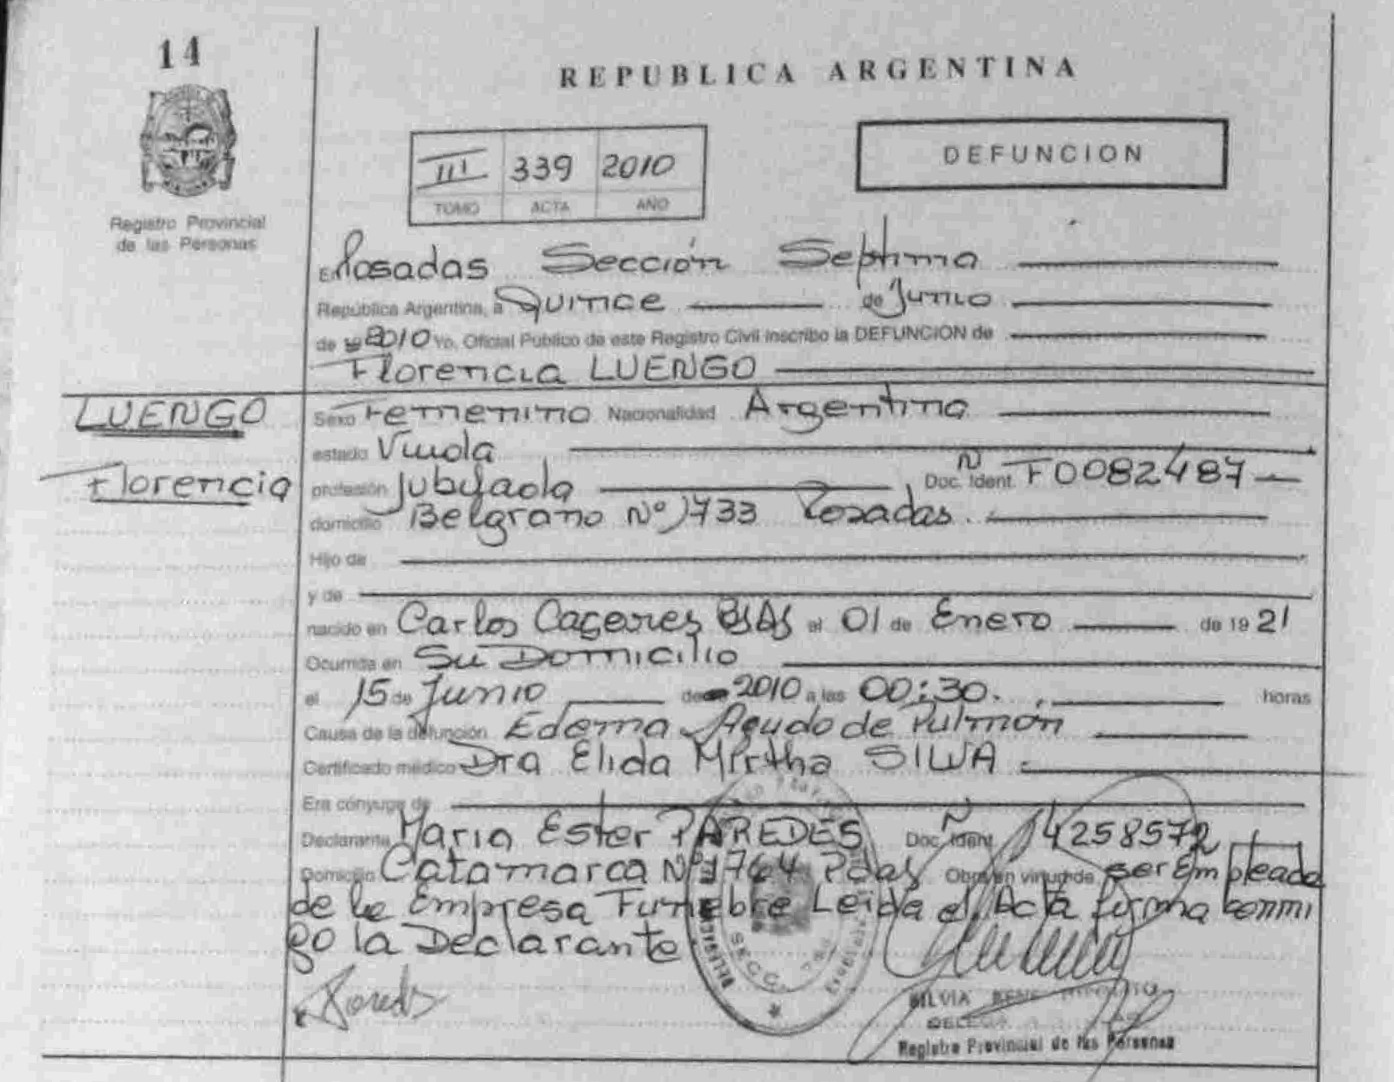 14
REPUBLICA ARGENTINA
DEFUNCION
III 339 2010
TOMO ACTA AÑO
Registro Provincial
de las Personas
En Posadas Sección Septima
República Argentina, a Quince de Junio
de 2010 Yo, Oficial Público de este Registro Civil inscribo la DEFUNCION de
Florencia LUENGO
LUENGO
Florencia
Sexo Femenino Nacionalidad Argentina
estado Viuda
profesión Jubilada Doc. Ident. N F0082487
domicilio Belgrano Nº 1733 Posadas.
Hijo de
y de
nacido en Carlos Caceres BsAs el 01 de Enero de 1921
Ocurrida en Su Domicilio
el 15 de Junio de 2010 a las 00:30. horas
Causa de la defunción Edema Agudo de Pulmón
Certificado médico Dra Elida Mirtha SILVA.
Era cónyuge de
Declarante Maria Ester PAREDES Doc. Ident. N 14258572
Domicilio Catamarca Nº 1764 Pdas Obra en virtud de ser Empleada
de la Empresa Funebre Leida el Acta firma conmi
go la Declarante
SECC.
SILVIA
Registro Provincial de las Personas